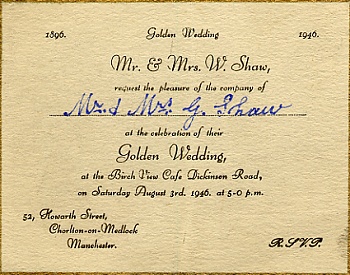 1896. Golden Wedding 1946.
Mr. & Mrs. W. Shaw,
request the pleasure of the company of
Mr. & Mrs. G. Shaw
at the celebration of their
Golden Wedding,
at the Birch View Cafe Dickinson Road,
on Saturday August 3rd. 1946. at 5-0 p.m.
52, Howarth Street,
Chorlton-on-Medlock
Manchester.
R.S.V.P.